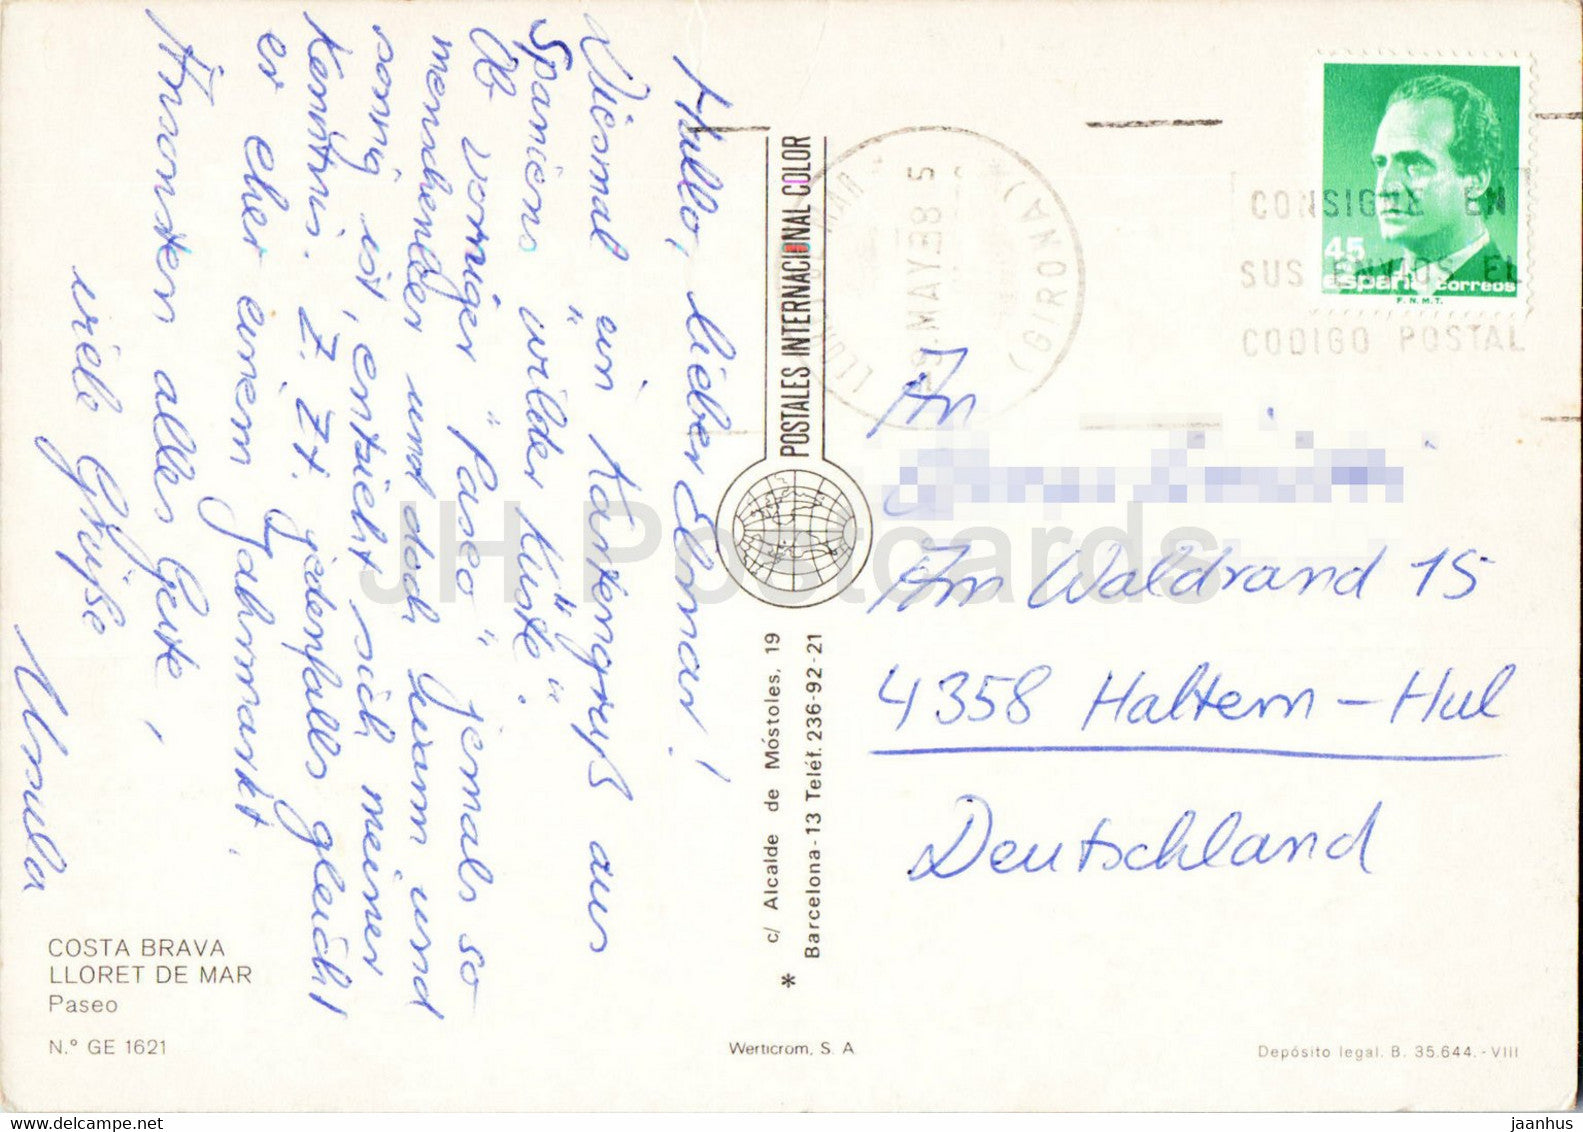 Hallo, lieber Elmar!
Diesmal ein Kartengruß aus
Spaniens "wilder Küste".
Ob voriger "Paseo" jemals so
menschenleer und doch warm und
sonnig ist, entzieht sich meiner
Kenntnis. Z. Zt. jedenfalls gleicht
er eher einem Jahrmarkt.
Ansonsten alles Gute,
viele Grüße
Ursula
COSTA BRAVA
LLORET DE MAR
Paseo
N.° GE 1621
POSTALES INTERNACIONAL COLOR
* c/ Alcalde de Móstoles, 19
Barcelona-13 Teléf. 236-92-21
Werticrom, S. A.
MAY.88
(GIRONA)
CONSIGNE EN
SUS ENVIOS EL
CODIGO POSTAL
45
España correos
F.N.M.T.
An
Am Waldrand 15
4358 Haltern-Hul
Deutschland
Depósito legal. B. 35.644.-VIII
JH Postcards
delcampe.net
jaanhus